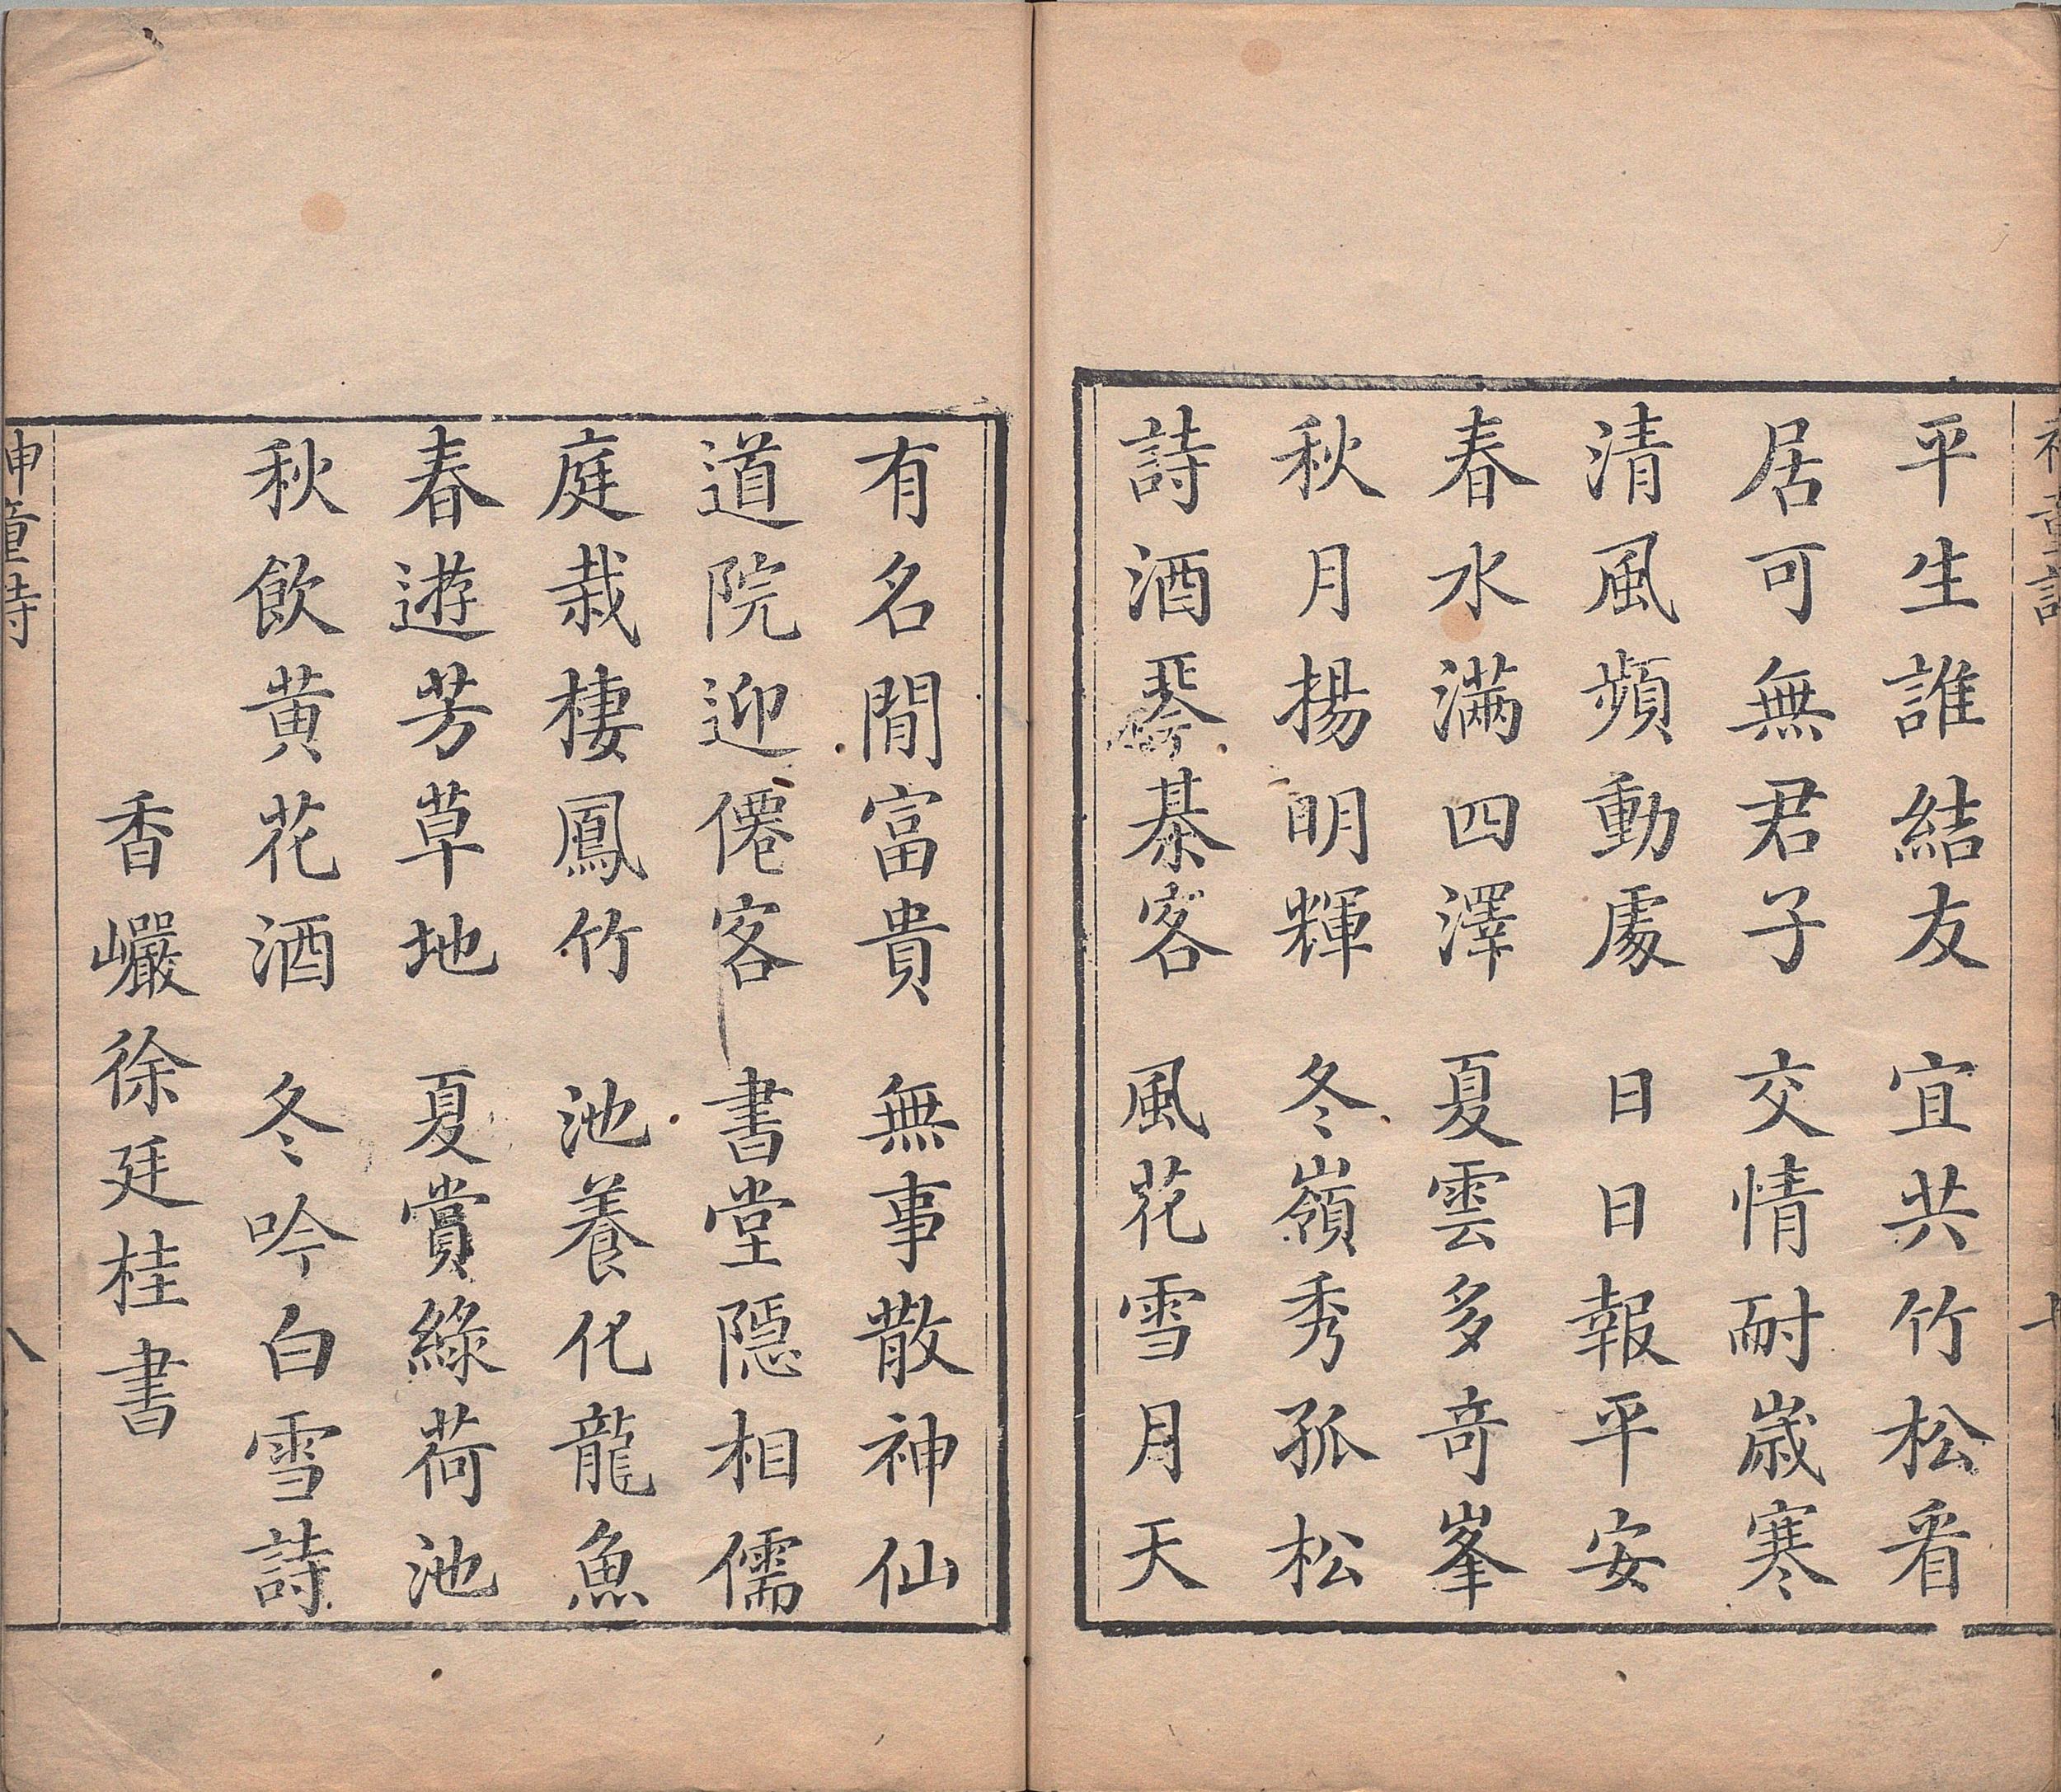 平生誰結友　宜共竹松看
居可無君子　交情耐歲寒
清風頻動處　日日報平安
春水滿四澤　夏雲多奇峯
秋月揚明輝　冬嶺秀孤松
詩酒琴棊客　風花雪月天
有名閒富貴　無事散神仙
道院迎僊客　書堂隱相儒
庭栽棲鳳竹　池養化龍魚
春遊芳草地　夏賞綠荷池
秋飲黃花酒　冬吟白雪詩
香巖徐廷桂書
神童詩
八